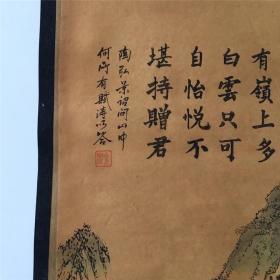 有嶺上多
白雲只可
自怡悦不
堪持贈君
陶弘景詔問山中
何所有賦詩以答